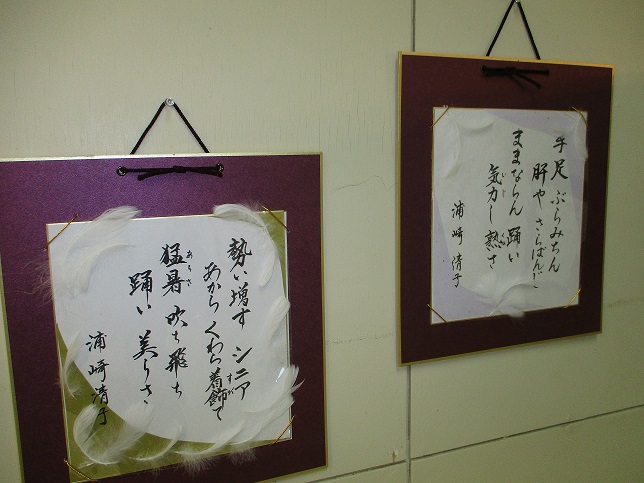 手足 ぶらみちん
肝や さらばんじ
ままならん 踊い
気力し 熱さ
浦崎 清子
勢い増す シニア
あから くわら 着飾て
すが
猛暑 吹ち飛ち
あちさ
踊い 美らさ
浦崎清子